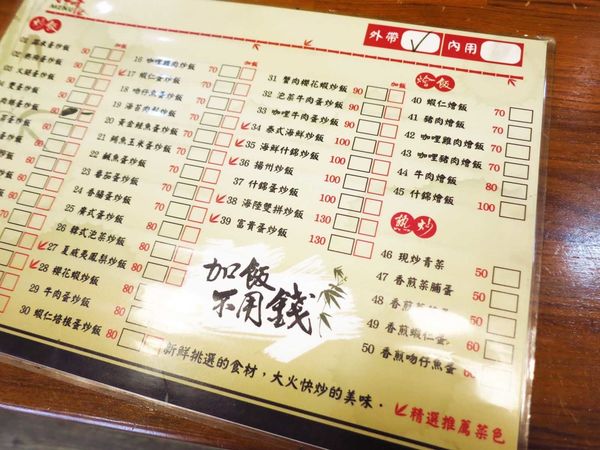 MENU
外帶 內用
炒飯
加飯
蛋炒飯 50
蛋炒飯 50
火腿蛋炒飯
蛋炒飯
蛋炒飯 60
16 咖哩雞肉炒飯 70
17 蝦仁蛋炒飯 70
18 吻仔魚蛋炒飯 70
19 滑蛋
20 黃金鮭魚蛋炒飯
21 鮪魚玉米蛋炒飯
22 鹹魚蛋炒飯
23 番茄蛋炒飯
24 香腸蛋炒飯
25 廣式蛋炒飯
26 韓式泡菜炒飯
27 夏威夷鳳梨炒飯
28 櫻花蝦炒飯
29 牛肉蛋炒飯 80
30 蝦仁培根蛋炒飯 80
加飯
31 蟹肉櫻花蝦炒飯 90
32 泡菜牛肉蛋炒飯 90
33 咖哩牛肉蛋炒飯 90
34 泰式海鮮炒飯 100
35 海鮮什錦炒飯 100
36 揚州炒飯 100
37 什錦蛋炒飯 100
38 海陸雙拼炒飯 130
39 富貴蛋炒飯 130
燴飯
40 蝦仁燴飯 70
41 豬肉燴飯 70
42 咖哩雞肉燴飯 70
43 咖哩豬肉燴飯 70
44 牛肉燴飯 80
45 什錦燴飯 100
熱炒
46 現炒青菜 50
47 香煎菜脯蛋 50
48 香煎 蛋 50
49 香煎蝦仁蛋 60
50 香煎吻仔魚蛋 60
加飯
不用錢
新鮮挑選的食材，大火快炒的美味．
精選推薦菜色